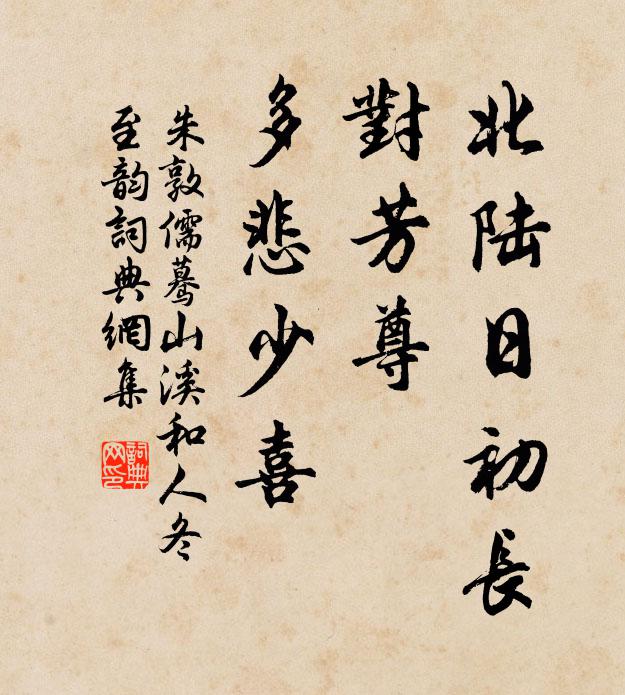 北陆日初長
對芳尊
多悲少喜
朱敦儒蓦山溪和人冬
至韵詞典網集
詞典
网印